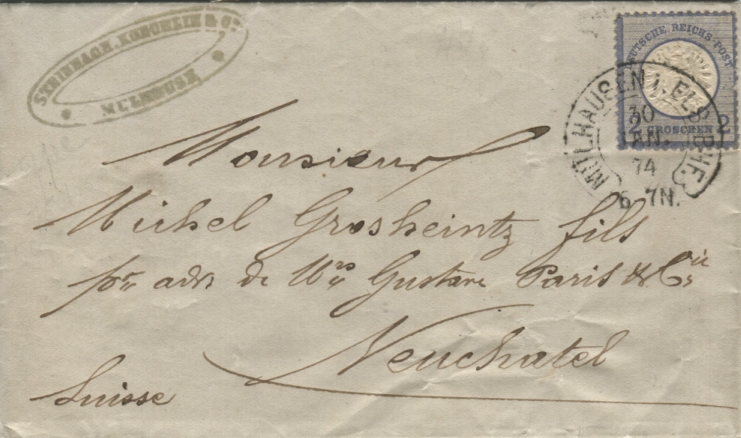 STEINBACH, KOECHLIN & Cie
MULHOUSE
DEUTSCHE REICHS-POST
2 GROSCHEN 2
MÜLHAUSEN i. ELS. BHF.
30
JAN.
74
6-7N.
Monsieur
Michel Grosheintz fils
pr adr de Mrs Gustave Paris & Cie
Neuchatel
Suisse